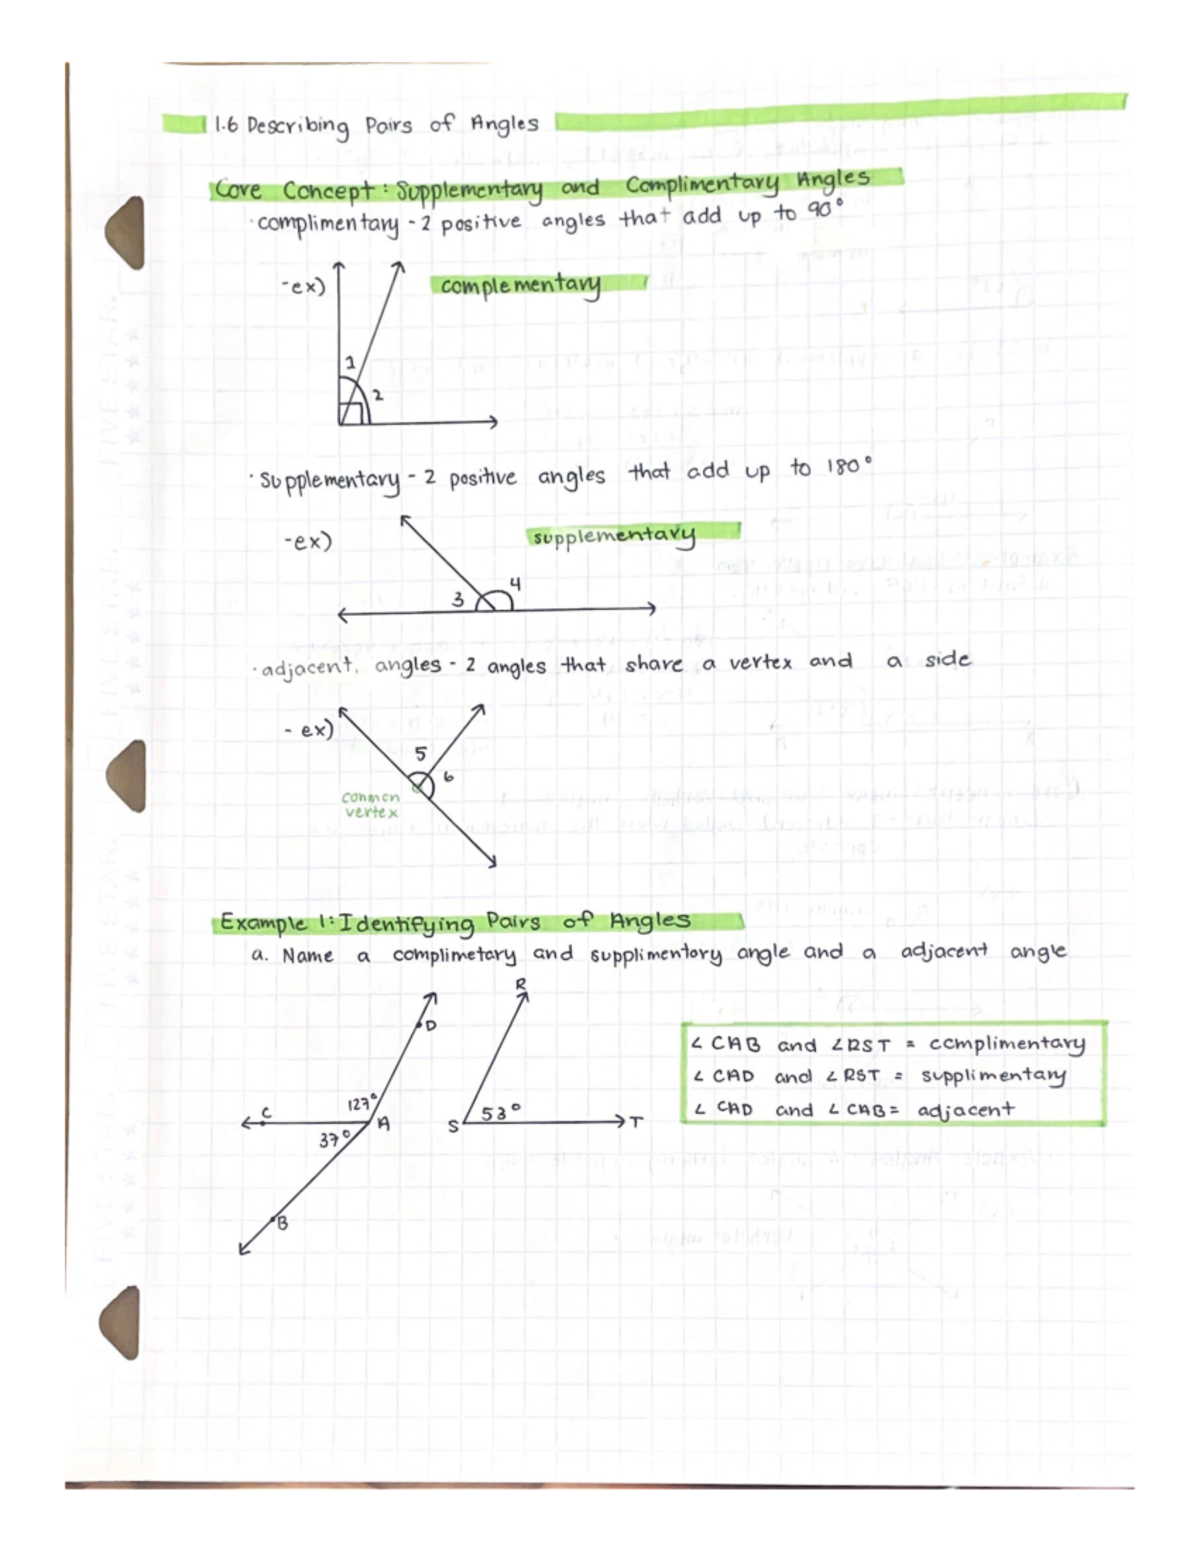 1.6 Describing Pairs of Angles
Core Concept: Supplementary and Complimentary Angles
· complimentary - 2 positive angles that add up to 90°
-ex)
complementary
1
2
· Supplementary - 2 positive angles that add up to 180°
-ex)
supplementary
3
4
· adjacent, angles - 2 angles that share a vertex and a side
- ex)
5
6
common
vertex
Example 1: Identifying Pairs of Angles
a. Name a complimetary and supplimentory angle and a adjacent angle
R
D
∠ CAB and ∠RST = complimentary
∠ CAD and ∠RST = supplimentary
∠ CAD and ∠ CAB = adjacent
C
127°
A
37°
S
53°
T
B
FIVE STAR.
FIVE STAR.
FIVE STAR.
FIVE STAR.